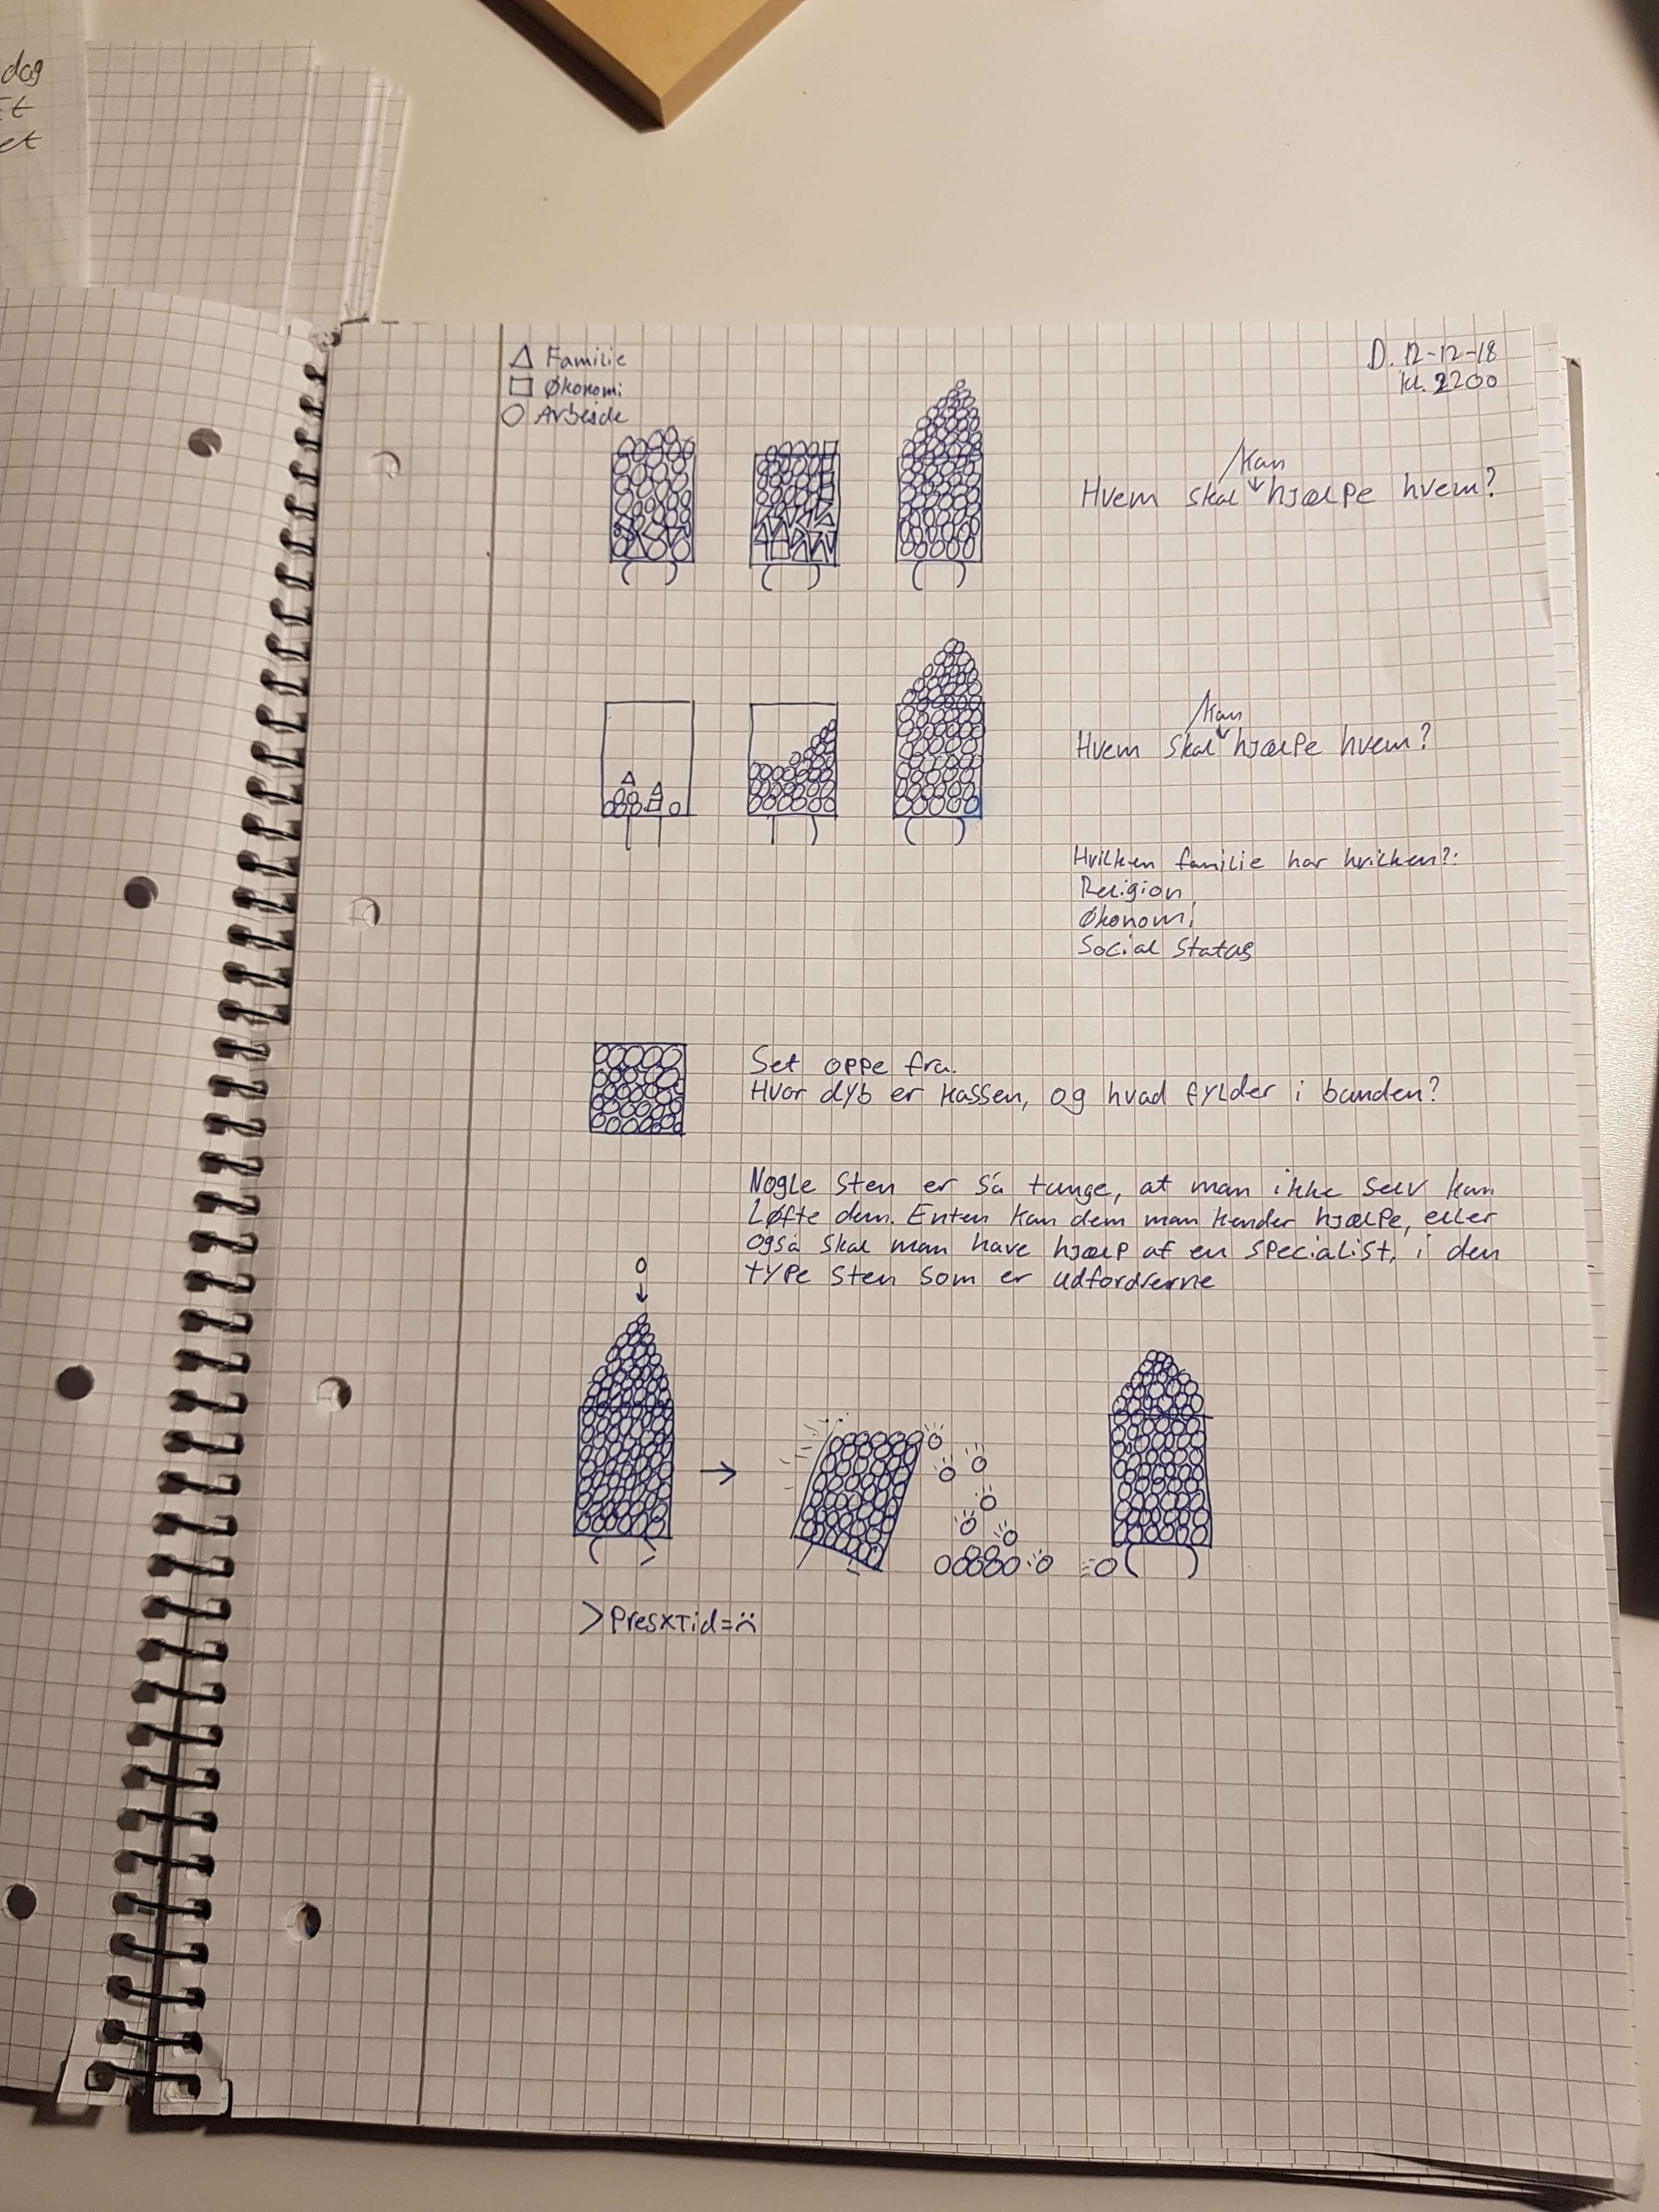 dag
Et
et
△ Familie
□ Økonomi
○ Arbejde
D. 12-12-18
kl. 2200
kan
Hvem skal hjælpe hvem?
kan
Hvem skal hjælpe hvem?
Hvilken familie har hvilken?:
Religion
Økonomi
Social Status
Set oppe fra.
Hvor dyb er kassen, og hvad fylder i bunden?
Nogle sten er så tunge, at man ikke selv kan
Løfte dem. Enten kan dem man kender hjælpe, eller
også skal man have hjælp af en specialist, i den
type sten som er udfordrerne
>Pres×Tid=☹